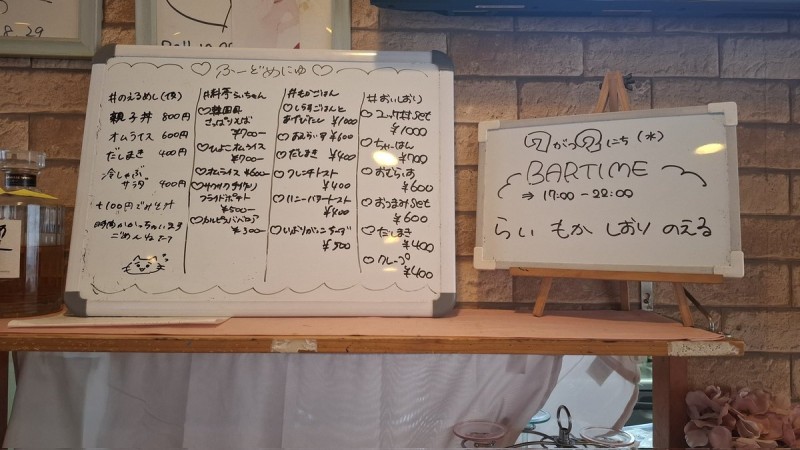 8.29
♡ ふーどめにゅ ♡
#のえるめし(仮)
親子丼 800円
オムライス 600円
だしまき 400円
冷しゃぶ
サラダ 400円
+100円で
時間かかっちゃいます
ごめんね
#料亭らいちゃん
♡韓国風
さっぱりそば
¥700-
♡ひよこオムライス
¥700-
♡オムライス ¥600-
フライドポテト
¥500-
¥300-
#もかごはん
♡しらすごはんと
¥1000
♡おむらいす ¥600
♡だしまき ¥400
♡フレンチトースト
¥400
♡ハニーバタートースト
¥400
♡いぶりがっこチーズ
¥500
#おいしおり
♡ユッケ丼set
¥1000
♡ちゃーはん
¥700
♡おむらいす
¥600
♡おつまみset
¥600
♡だしまき
¥400
♡クレープ
¥400
がつ にち (水)
BARTIME
⇒ 17:00 - 22:00
らい もか しおり のえる